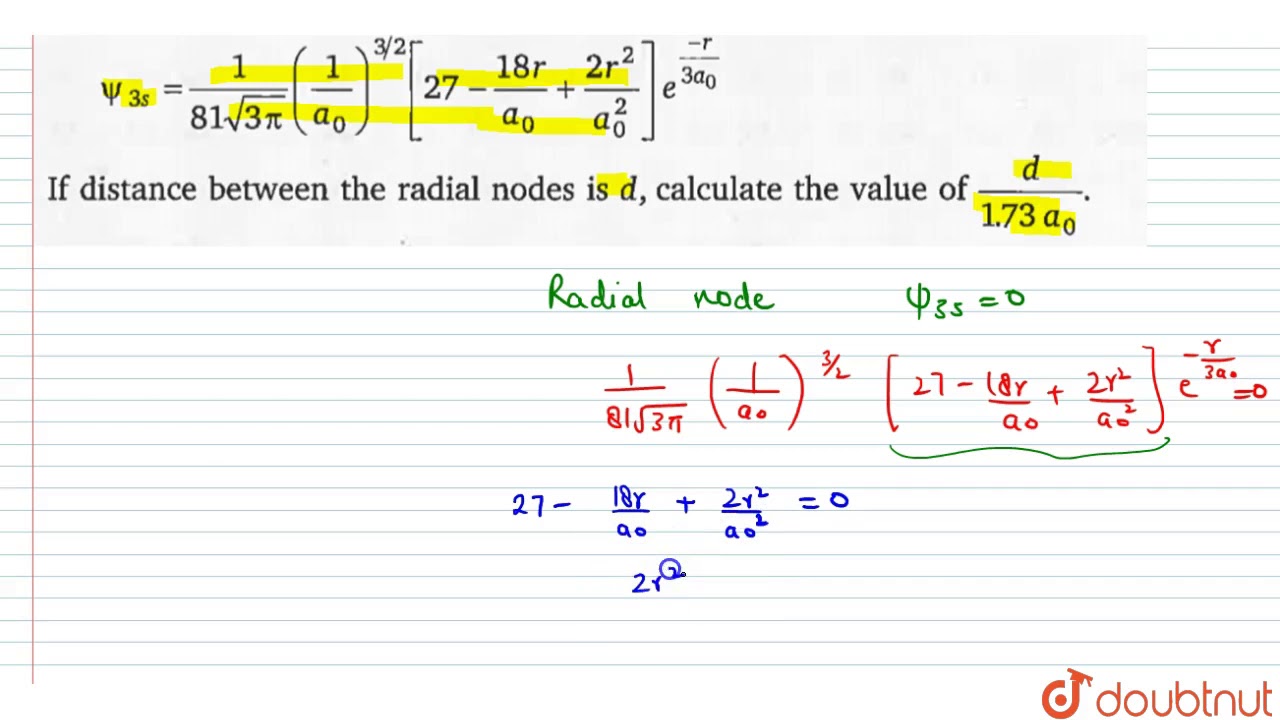 ψ₃ₛ = 1/(81√3π) (1/a₀)^(3/2) [27 − 18r/a₀ + 2r²/a₀²] e^(−r/3a₀)
If distance between the radial nodes is d, calculate the value of d/(1.73 a₀).
Radial node ψ₃ₛ = 0
1/(81√3π) (1/a₀)^(3/2) [27 − 18r/a₀ + 2r²/a₀²] e^(−r/3a₀) = 0
27 − 18r/a₀ + 2r²/a₀² = 0
2r²
doubtnut